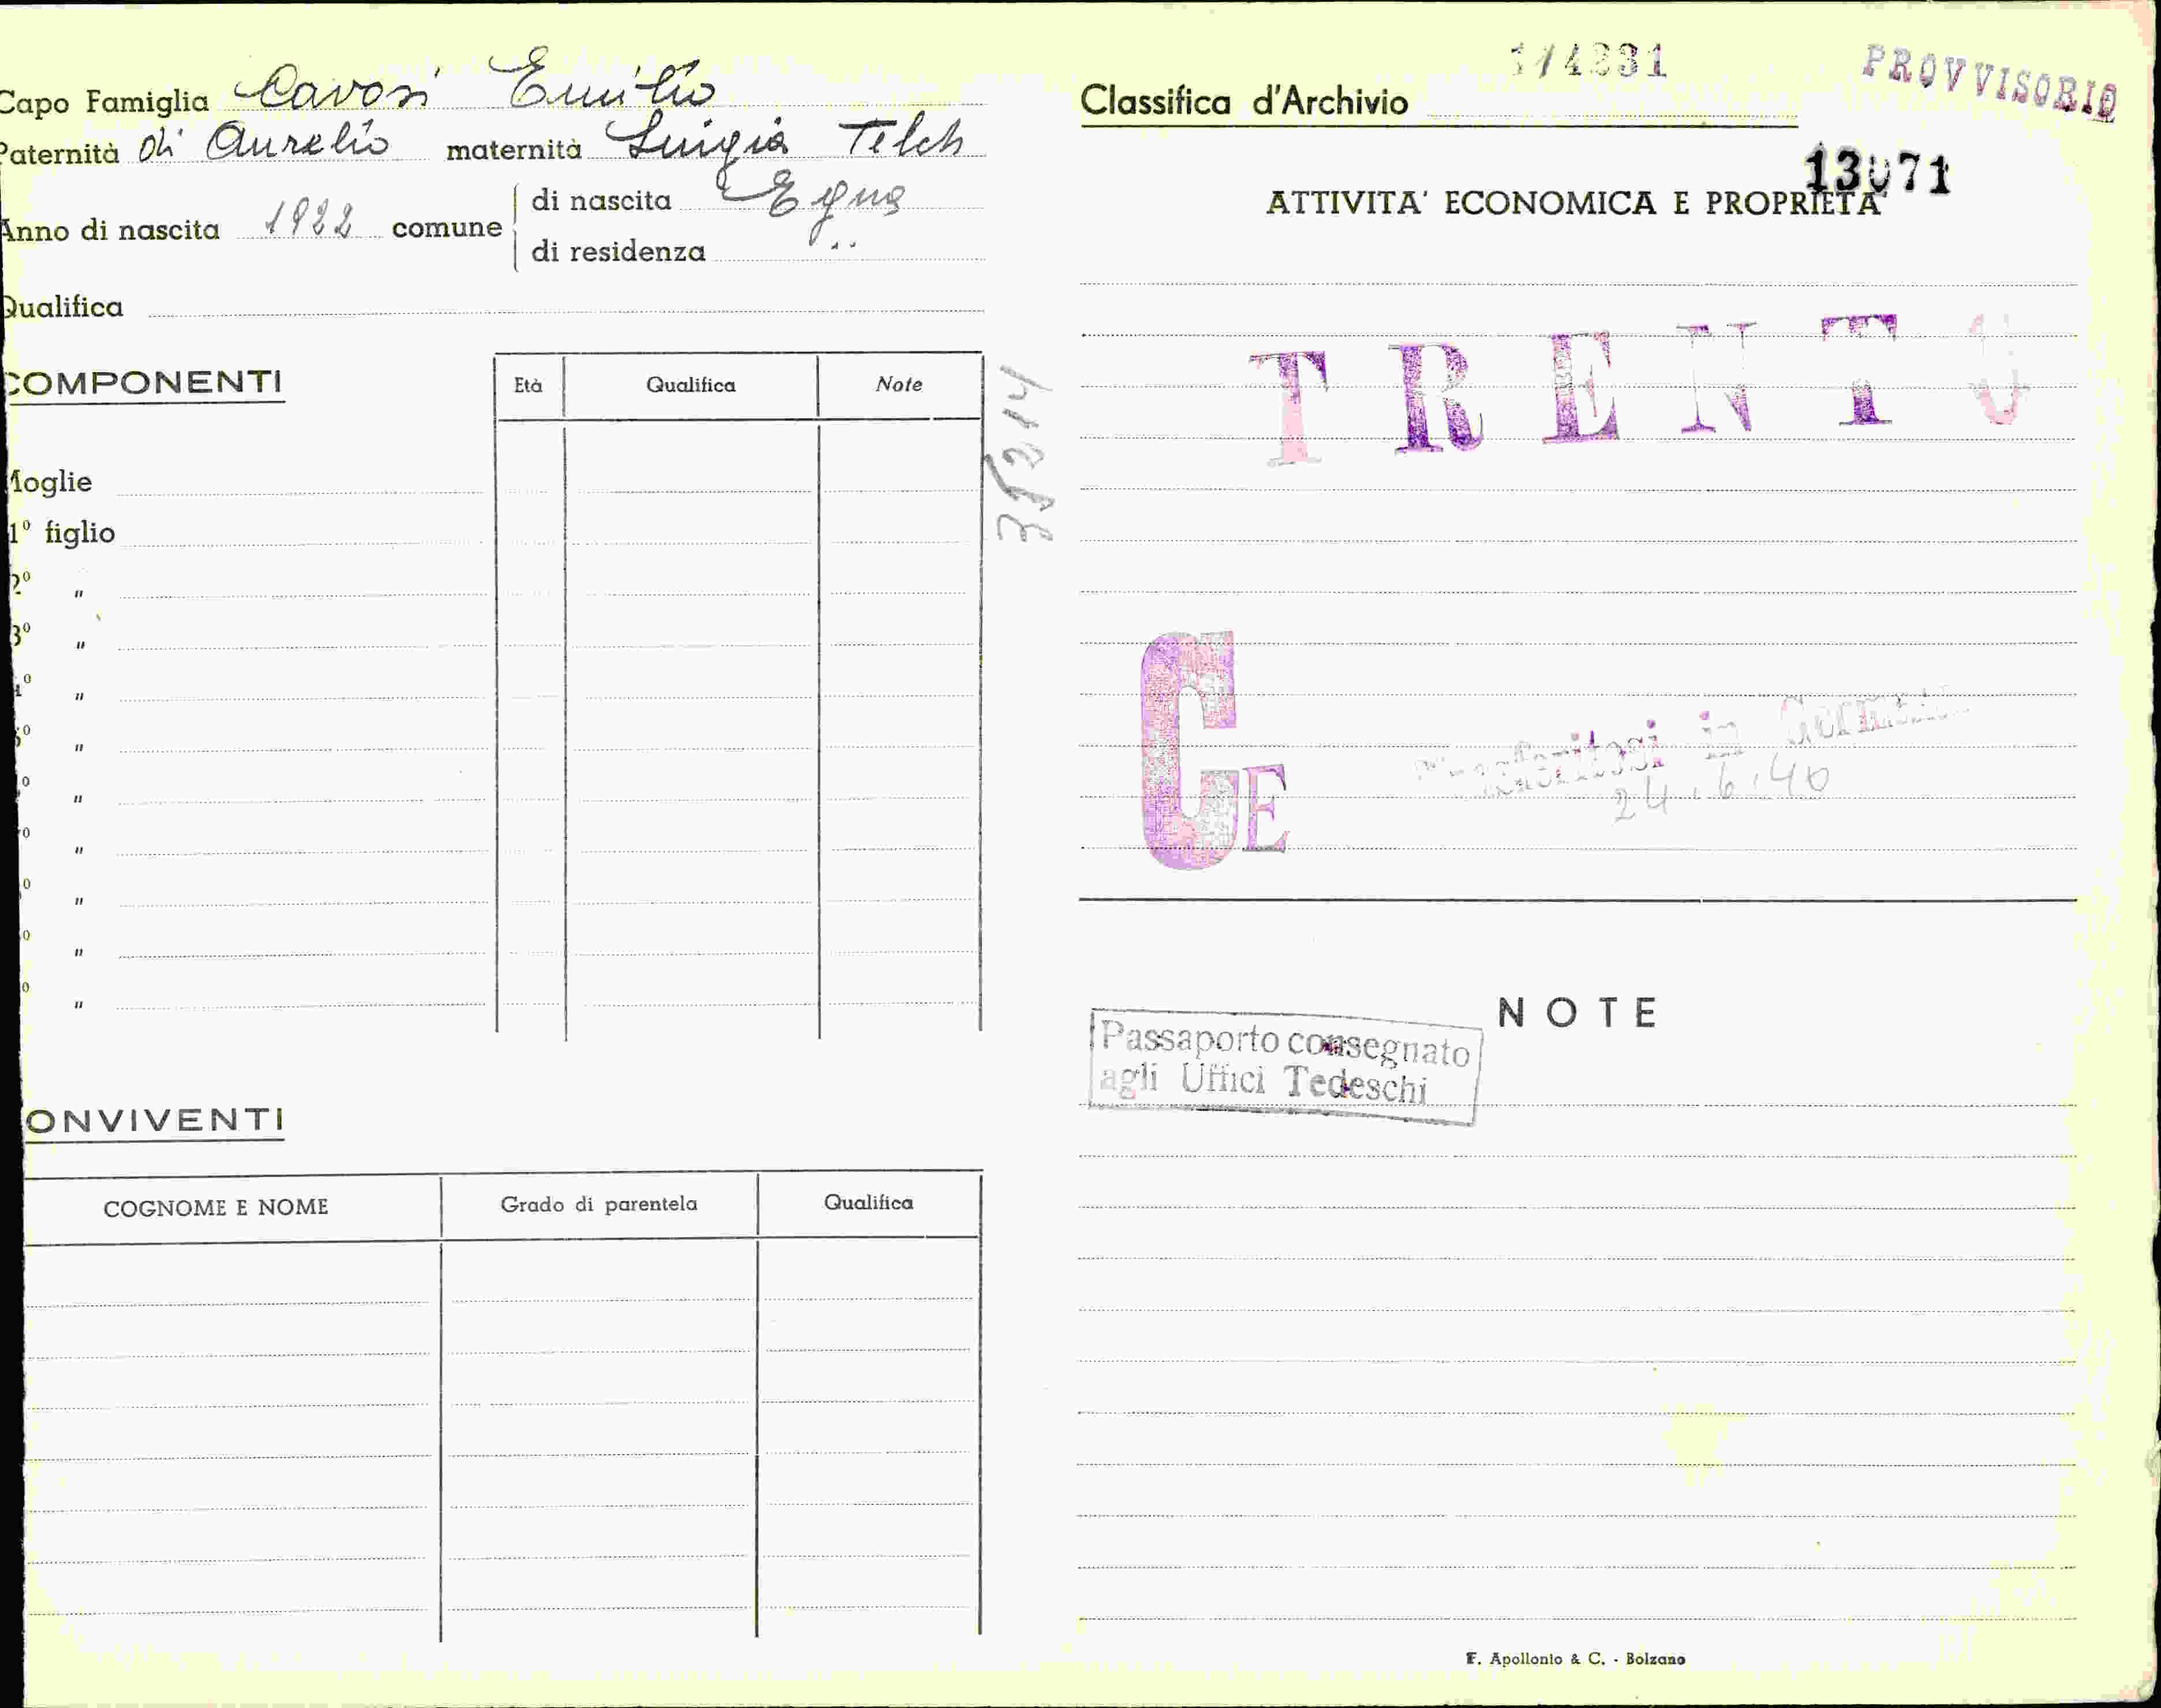 Capo Famiglia Cavosi Emilio
Paternità di Aurelio maternità Luigia Telch
Anno di nascita 1922 comune di nascita Egna
di residenza "
Qualifica
COMPONENTI
Età Qualifica Note
Moglie
1° figlio
2° "
3° "
4° "
5° "
° "
° "
° "
° "
° "
35214
ONVIVENTI
COGNOME E NOME Grado di parentela Qualifica
PROVVISORIO
Classifica d'Archivio
13071
ATTIVITA' ECONOMICA E PROPRIETA'
TRENTO
CE
in
24.6.40
NOTE
Passaporto consegnato
agli Uffici Tedeschi
F. Apollonio & C. - Bolzano